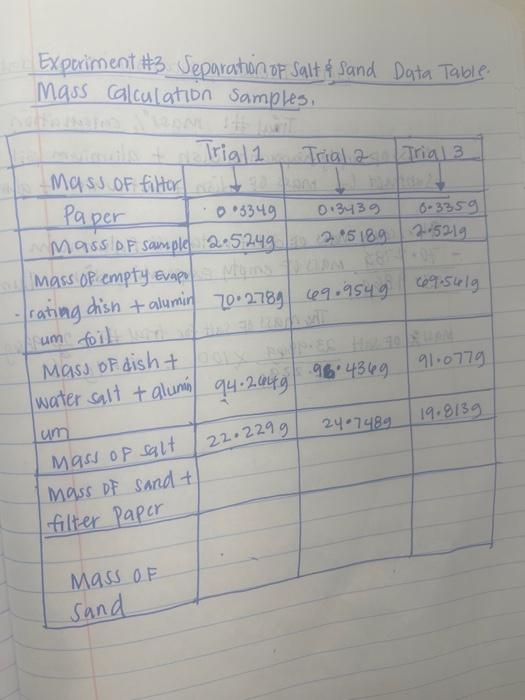 Experiment #3 Separation of Salt & Sand Data Table.
Mass Calculation Samples.
Trial 1 Trial 2 Trial 3
Mass of filter
Paper 0.334g 0.343g 0.335g
Mass of sample 2.524g 2.518g 2.521g
Mass of empty Evapo
rating dish + alumin 70.278g 69.954g 69.561g
um foil
Mass of dish +
water salt + alumin 94.264g 96.436g 91.077g
um
Mass of salt 22.229g 24.748g 19.813g
Mass of sand +
filter paper
Mass of
Sand